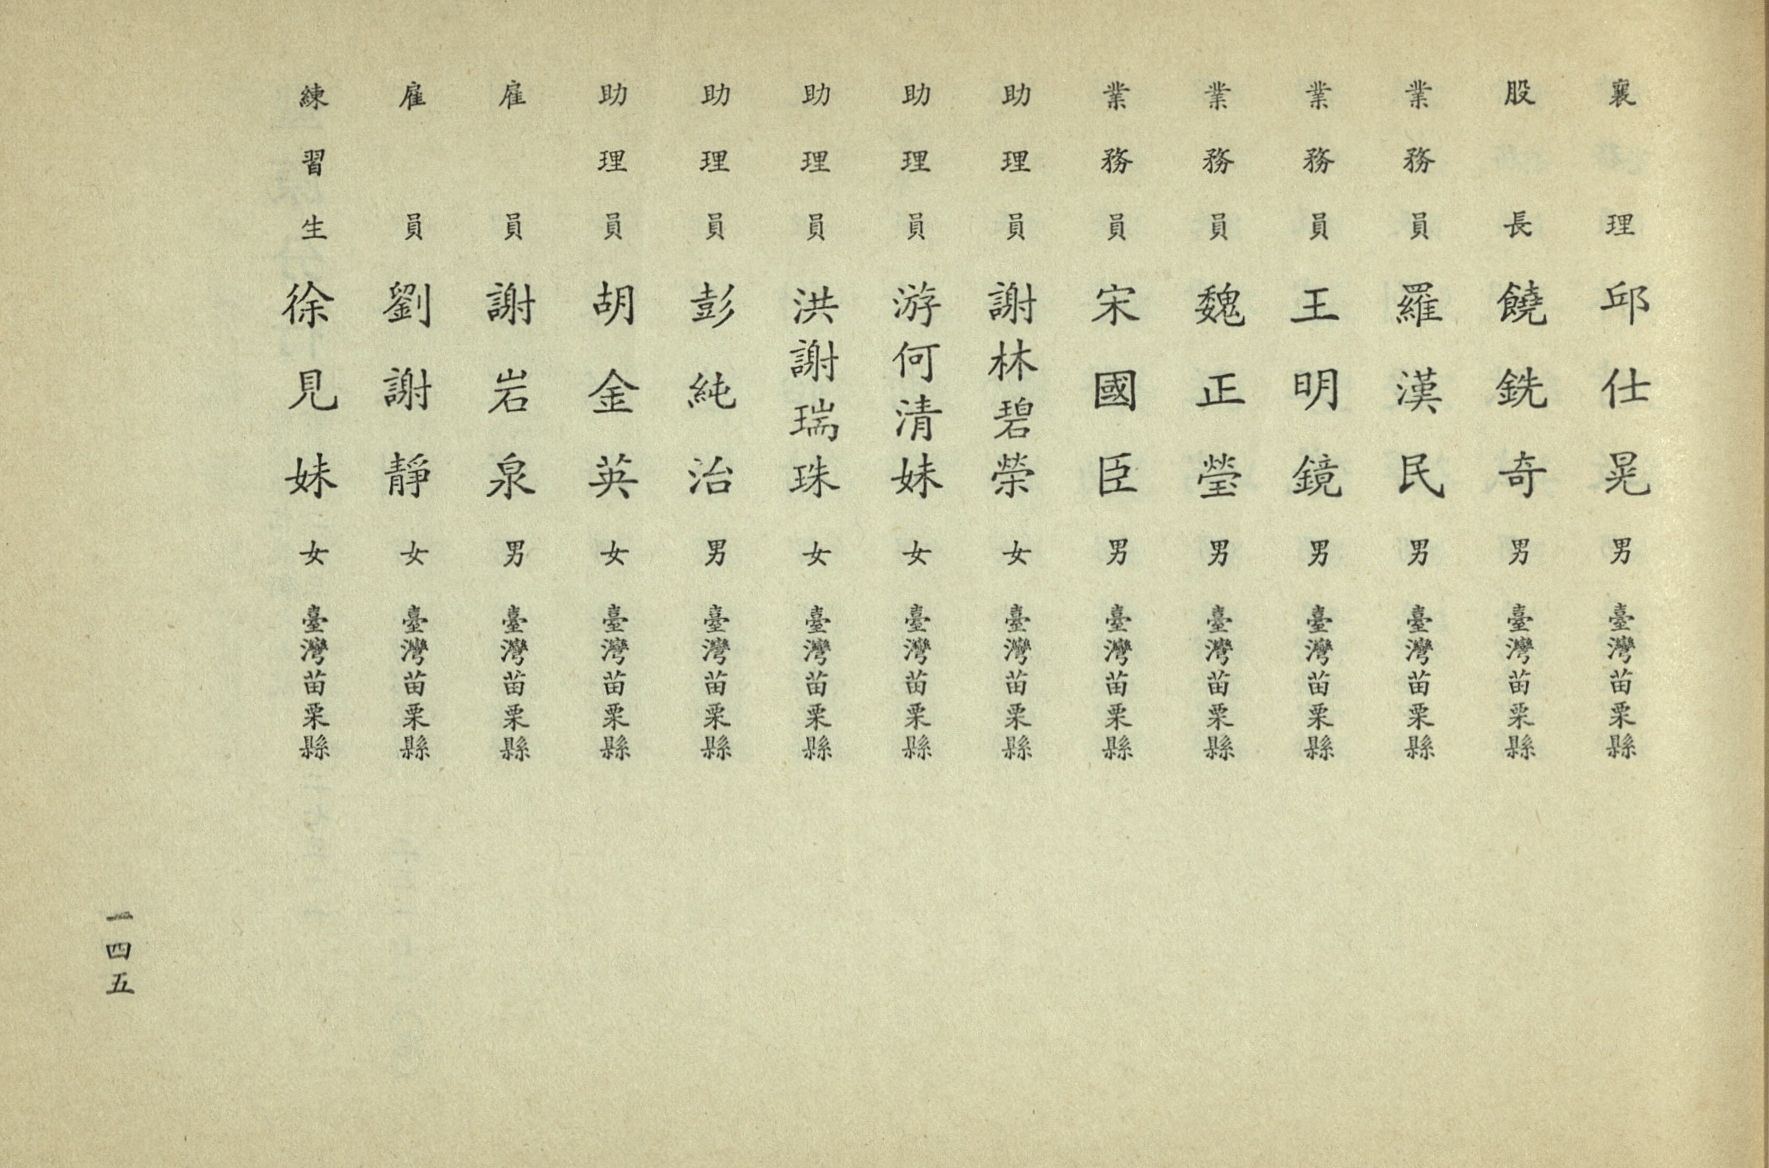 襄理 邱仕晃 男 臺灣苗栗縣
股長 饒銑奇 男 臺灣苗栗縣
業務員 羅漢民 男 臺灣苗栗縣
業務員 王明鏡 男 臺灣苗栗縣
業務員 魏正瑩 男 臺灣苗栗縣
業務員 宋國臣 男 臺灣苗栗縣
助理員 謝林碧榮 女 臺灣苗栗縣
助理員 游何清妹 女 臺灣苗栗縣
助理員 洪謝瑞珠 女 臺灣苗栗縣
助理員 彭純治 男 臺灣苗栗縣
助理員 胡金英 女 臺灣苗栗縣
雇員 謝岩泉 男 臺灣苗栗縣
雇員 劉謝靜 女 臺灣苗栗縣
練習生 徐見妹 女 臺灣苗栗縣
一四五